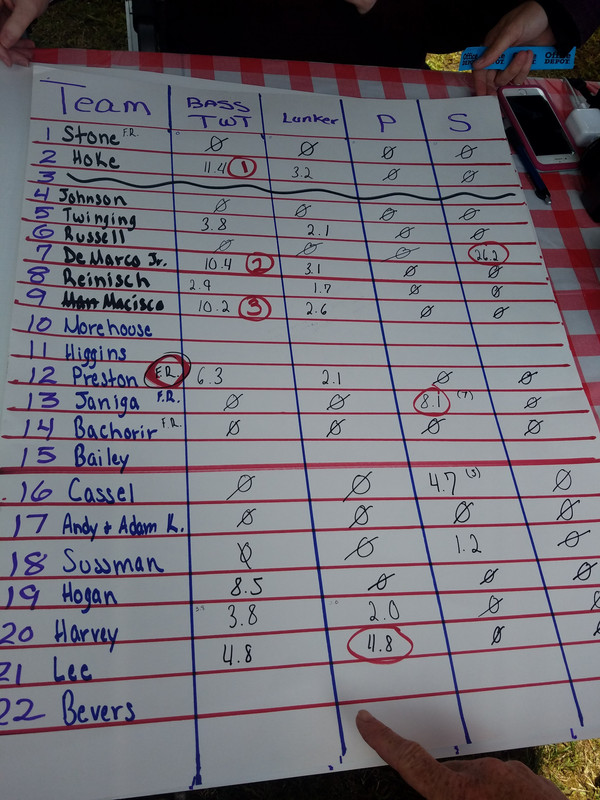 Office DEPOT
Team BASS TWT Lunker P S
1 Stone F.R. Ø Ø Ø Ø
2 Hoke 11.4 1 3.2 Ø Ø
3
4 Johnson Ø Ø Ø Ø
5 Twinging 3.8 2.1 Ø Ø
6 Russell Ø Ø Ø 26.2
7 DeMarco Jr. 10.4 2 3.1 Ø Ø
8 Reinisch 2.9 1.7 Ø Ø
9 Macisco 10.2 3 2.6 Ø Ø
10 Morehouse
11 Higgins
12 Preston F.R. 6.3 2.1 Ø Ø
13 Janiga F.R. Ø Ø 8.1 (7) Ø
14 Bachorir F.R. Ø Ø Ø Ø
15 Bailey
16 Cassel Ø Ø 4.7 (3) Ø
17 Andy & Adam K. Ø Ø Ø Ø
18 Sussman Ø Ø 1.2 Ø
19 Hogan 8.5 Ø Ø Ø
20 Harvey 3.8 2.0 Ø Ø
21 Lee 4.8 4.8 Ø Ø
22 Bevers